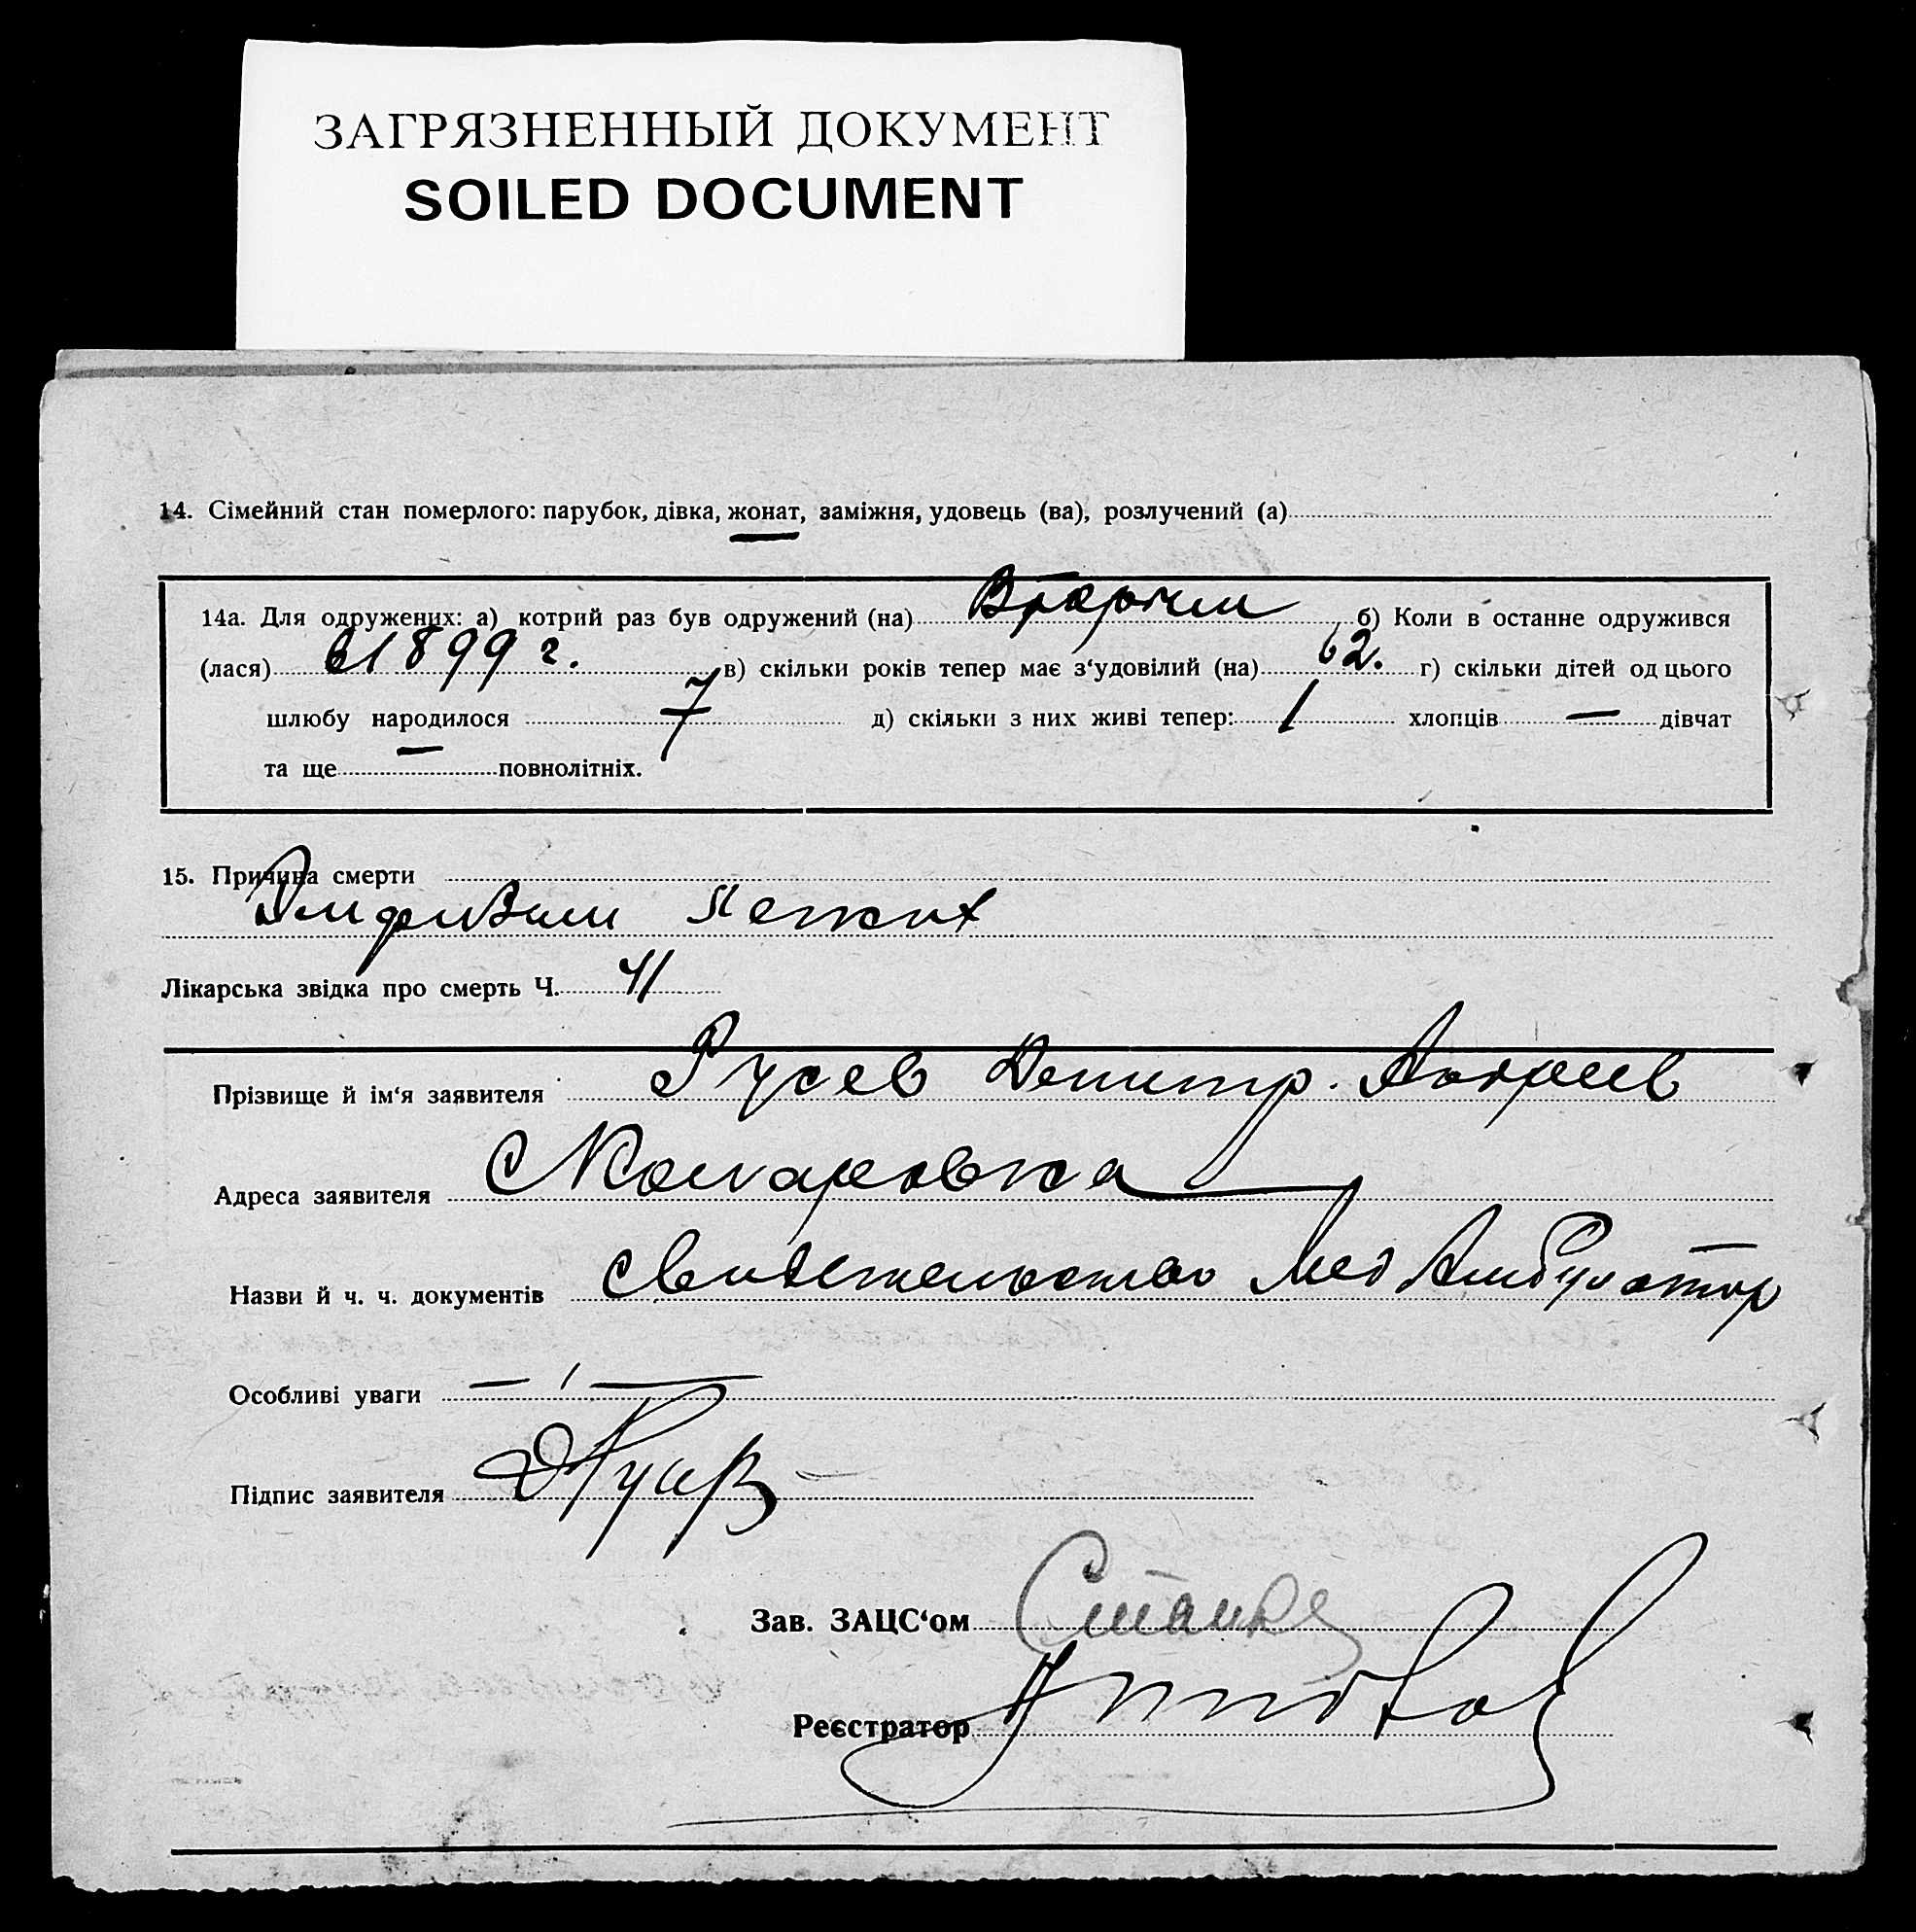 ЗАГРЯЗНЕННЫЙ ДОКУМЕНТ
SOILED DOCUMENT
14. Сімейний стан померлого: парубок, дівка, жонат, заміжня, удовець (ва), розлучений (а)
14а. Для одружених: а) котрий раз був одружений (на) Вторичн б) Коли в останне одружився
(лася) в 1899 г. в) скільки років тепер має з‘удовілий (на) 62. г) скільки дітей од цього
шлюбу народилося 7 д) скільки з них живі тепер: 1 хлопців — дівчат
та ще — повнолітніх.
15. Причина смерти
легких
Лікарська звідка про смерть Ч. 41
Прізвище й ім‘я заявителя Русев Дмитр. Андреев
Адреса заявителя с Комаровка
Назви й ч. ч. документів свидетельство Мед Амбулатор
Особливі уваги — / —
Підпис заявителя
Зав. ЗАЦС‘ом
Реєстратор